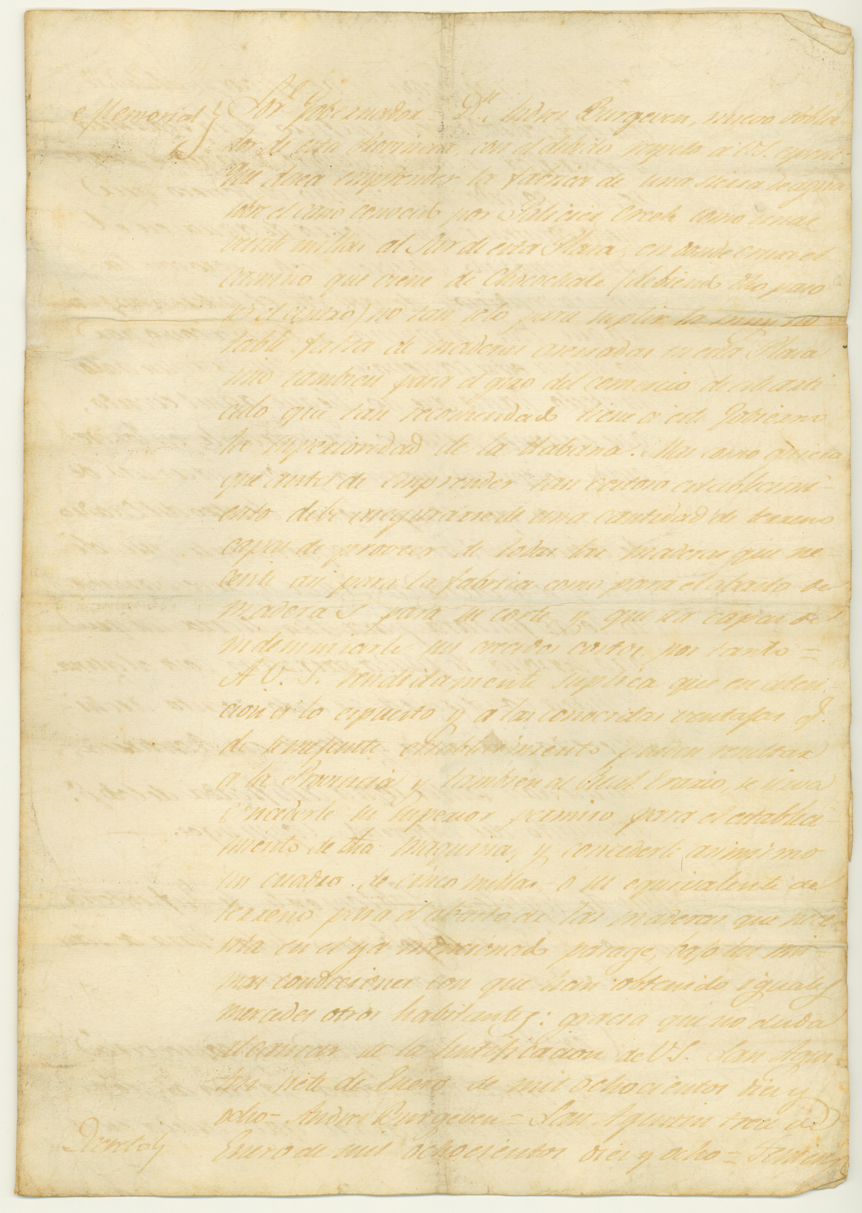 Memorial Sor. Gobernador = Dn. Andres Burgevin, nuevo
de esta Provincia con el debido respeto a V.S.
que desea emprender la fabrica de una sierra de agua
sobre el caño conocido por como unas
veinte millas al Sur de esta Plaza, en donde cruza el
camino que viene de
no tan solo para suplir la muy
table falta de maderas aserradas en esta Plaza
sino tambien para el giro del comercio de este arti-
culo que tan recomendado tiene a este Gobierno
la superioridad de la Habana. Mas como
que antes de emprender tan costoso establecimi-
ento debe asegurarse de una cantidad de terreno
capaz de proveer de todas las maderas que ne-
cesite asi para la fabrica como para el abasto de
maderas para su corte y que sea capaz de
indemnizarle sus crecidos costos, por tanto =
A V.S. rendidamente suplica que en aten-
cion a lo expuesto y a las conocidas ventajas q.
de semejante establecimiento pueden resultar
a la Provincia y tambien al Real Erario, se sirva
concederle su Superior permiso para el estableci-
miento de dha maquina, y concederle asimismo
un cuadro de cinco millas o su equivalente de
terreno para el abasto de las maderas que nece-
sita en el ya mencionado parage, bajo las mis-
mas condiciones con que han obtenido iguales
mercedes otros habitantes: gracia que no duda
alcanzar de la justificacion de V.S. San Agus-
tin siete de Enero de mil ochocientos diez y
ocho = Andres Burgevin = San Agustin trece de
Decreto Enero de mil ochocientos diez y ocho =